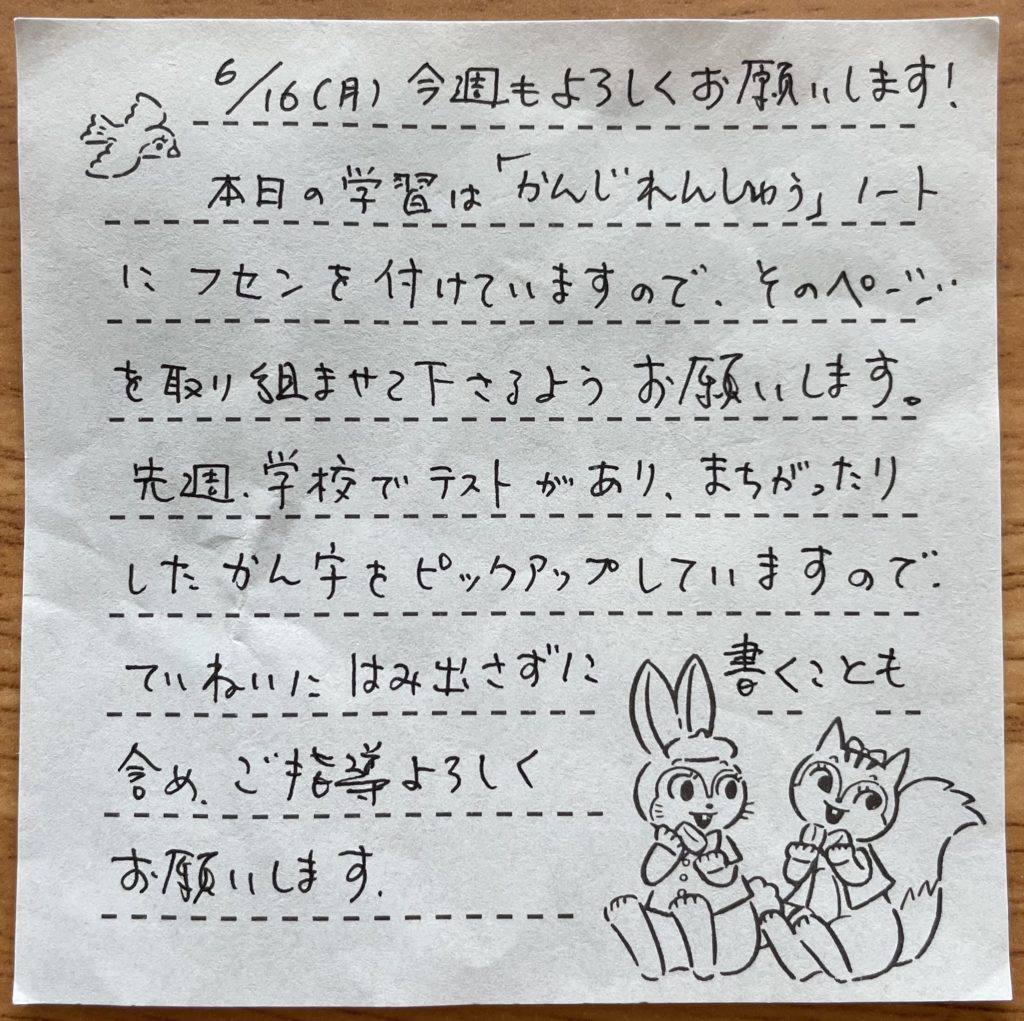 6/16(月) 今週もよろしくお願いします!
本日の学習は「かんじれんしゅう」ノート
に フセンを付けていますので、そのページ
を取り組ませて下さるよう お願いします。
先週、学校でテストがあり、まちがったり
したかん字をピックアップしていますので、
ていねいに はみ出さずに 書くことも
含め、ご指導よろしく
お願いします.